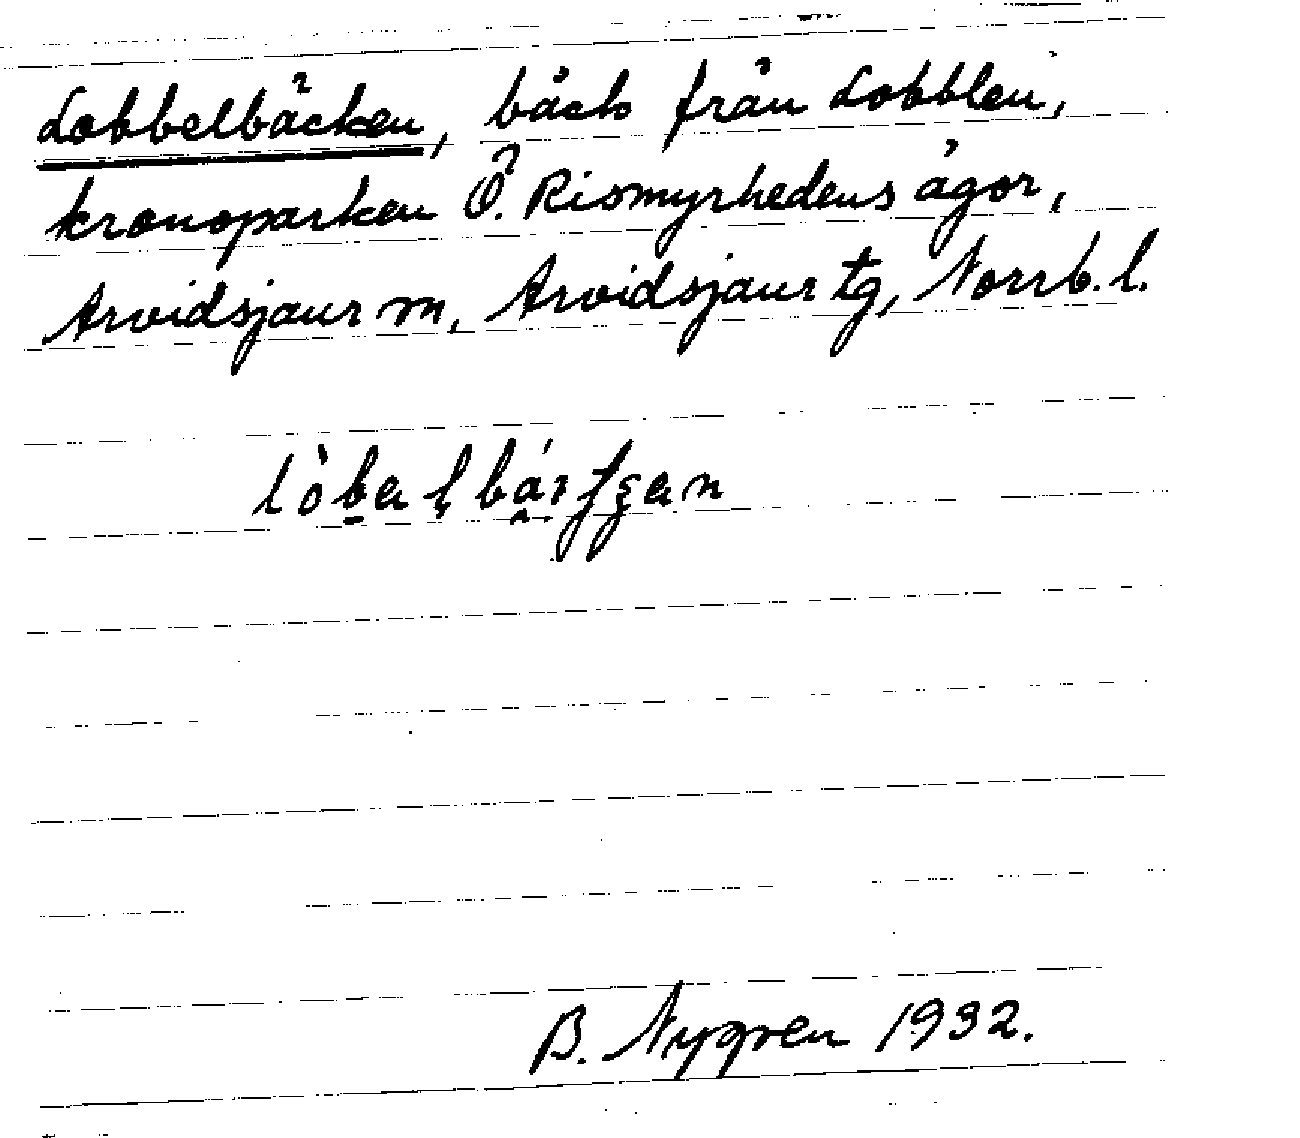 Lobbelbäcken, bäck från Lobblen,
kronoparken Ö. Rismyrhedens ägor,
Arvidsjaur sn, Arvidsjaur tg, Norrb. l.
B. Nygren 1932.